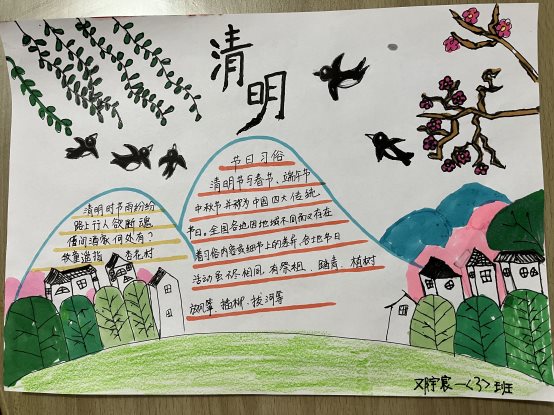 清明
清明时节雨纷纷
路上行人欲断魂
借问酒家何处有？
牧童遥指 杏花村
节日习俗
清明节与春节、端午节
中秋节并称为中国四大传统
节日,全国各地因地域不同而又存在
着习俗内容或细节上的差异,各地节日
活动虽不尽相同,有祭祖、踏青、植树
放风筝、插柳、拔河等
邓宇宸一<3>班